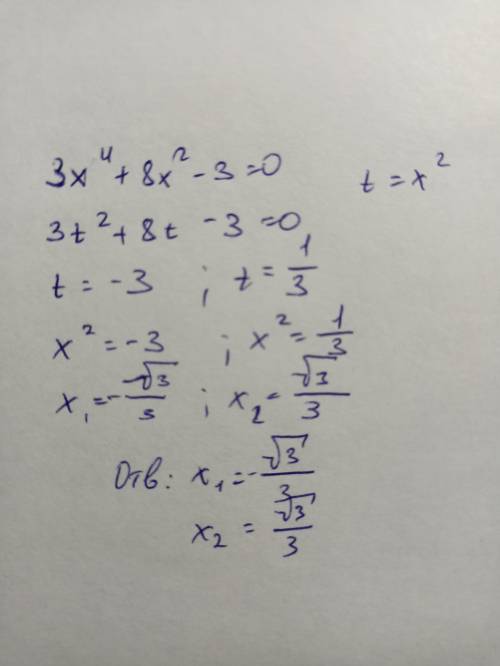 3x⁴ + 8x² - 3 = 0    t = x²
3t² + 8t - 3 = 0
t = -3 ; t = 1/3
x² = -3 ; x² = 1/3
x₁ = -√3/3 ; x₂ = √3/3
Отв: x₁ = -√3/3
x₂ = √3/3